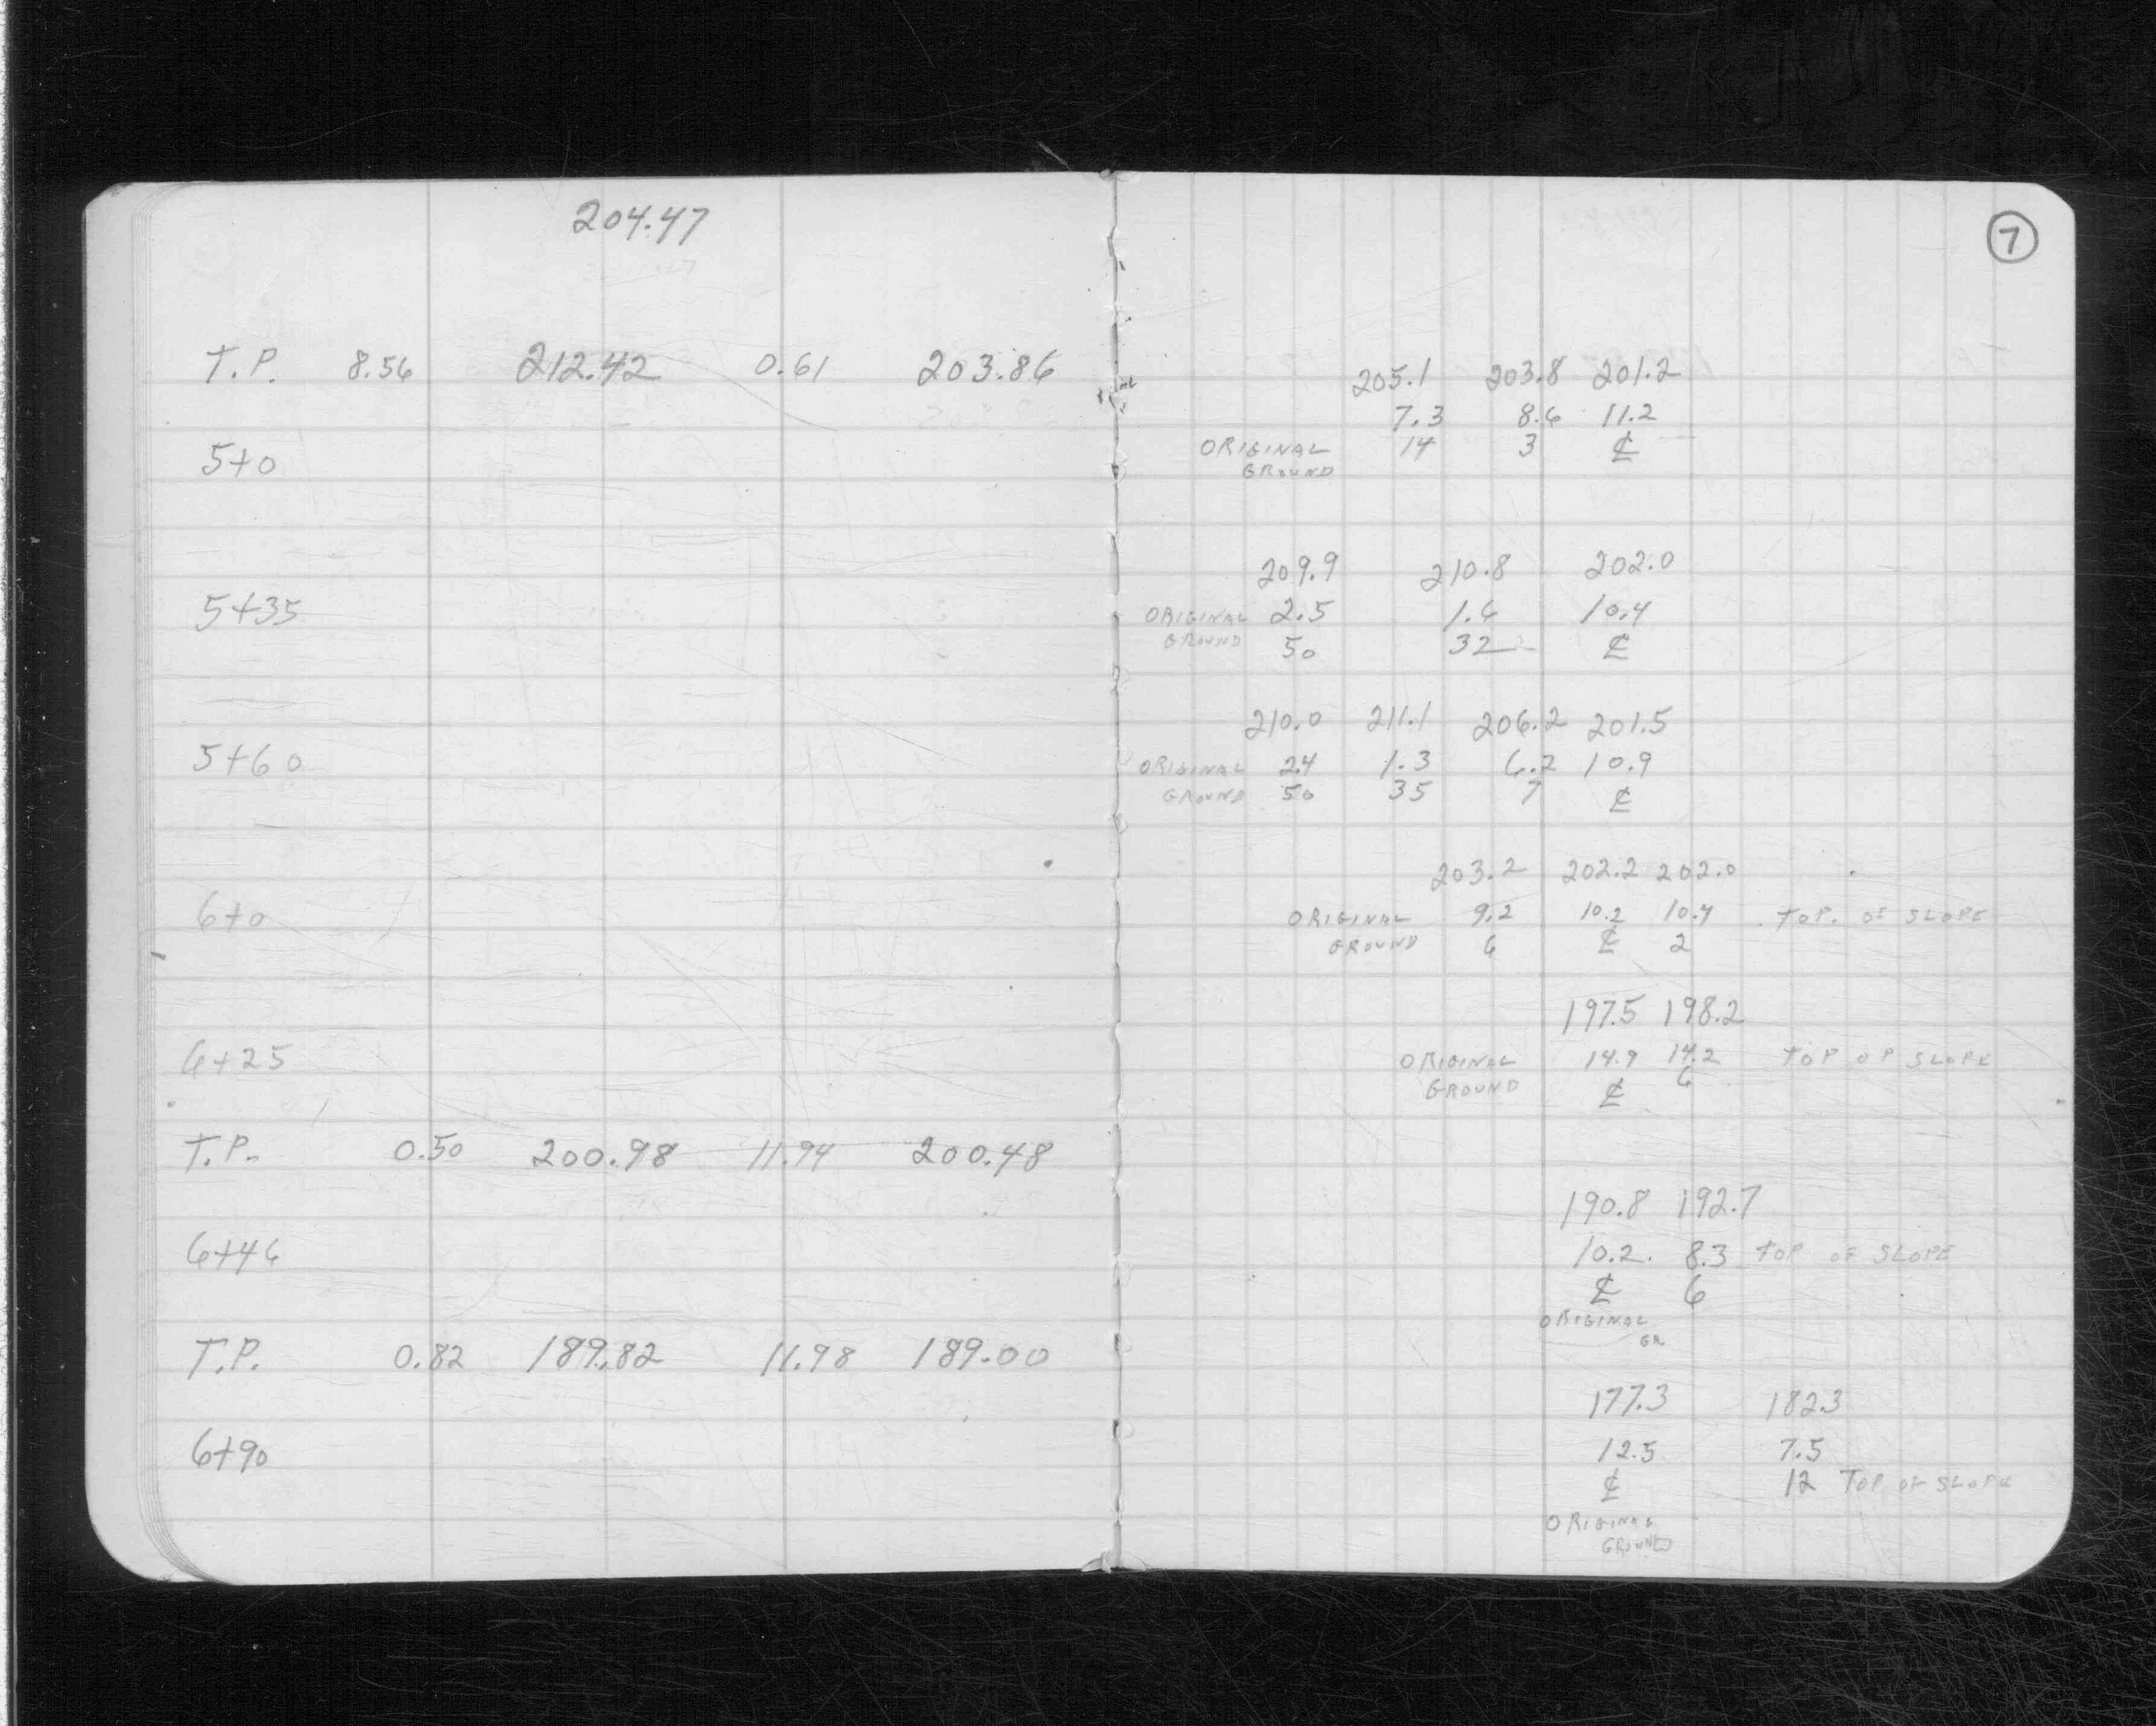 204.47
T.P. 8.56 212.42 0.61 203.86
5+0
5+35
5+60
6+0
6+25
T.P. 0.50 200.98 11.94 200.48
6+46
T.P. 0.82 189.82 11.98 189.00
6+90
7
205.1 203.8 201.2
7.3 8.6 11.2
ORIGINAL 14 3 ℄
GROUND
209.9 210.8 202.0
ORIGINAL 2.5 1.6 10.4
GROUND 50 32 ℄
210.0 211.1 206.2 201.5
ORIGINAL 2.4 1.3 6.2 10.9
GROUND 50 35 7 ℄
203.2 202.2 202.0
ORIGINAL 9.2 10.2 10.4 TOP. OF SLOPE
GROUND 6 ℄ 2
197.5 198.2
ORIGINAL 14.9 14.2 TOP OF SLOPE
GROUND ℄ 6
190.8 192.7
10.2. 8.3 TOP OF SLOPE
℄ 6
ORIGINAL
GR.
177.3 182.3
12.5 7.5
℄ 12 TOP OF SLOPE
ORIGINAL
GROUND